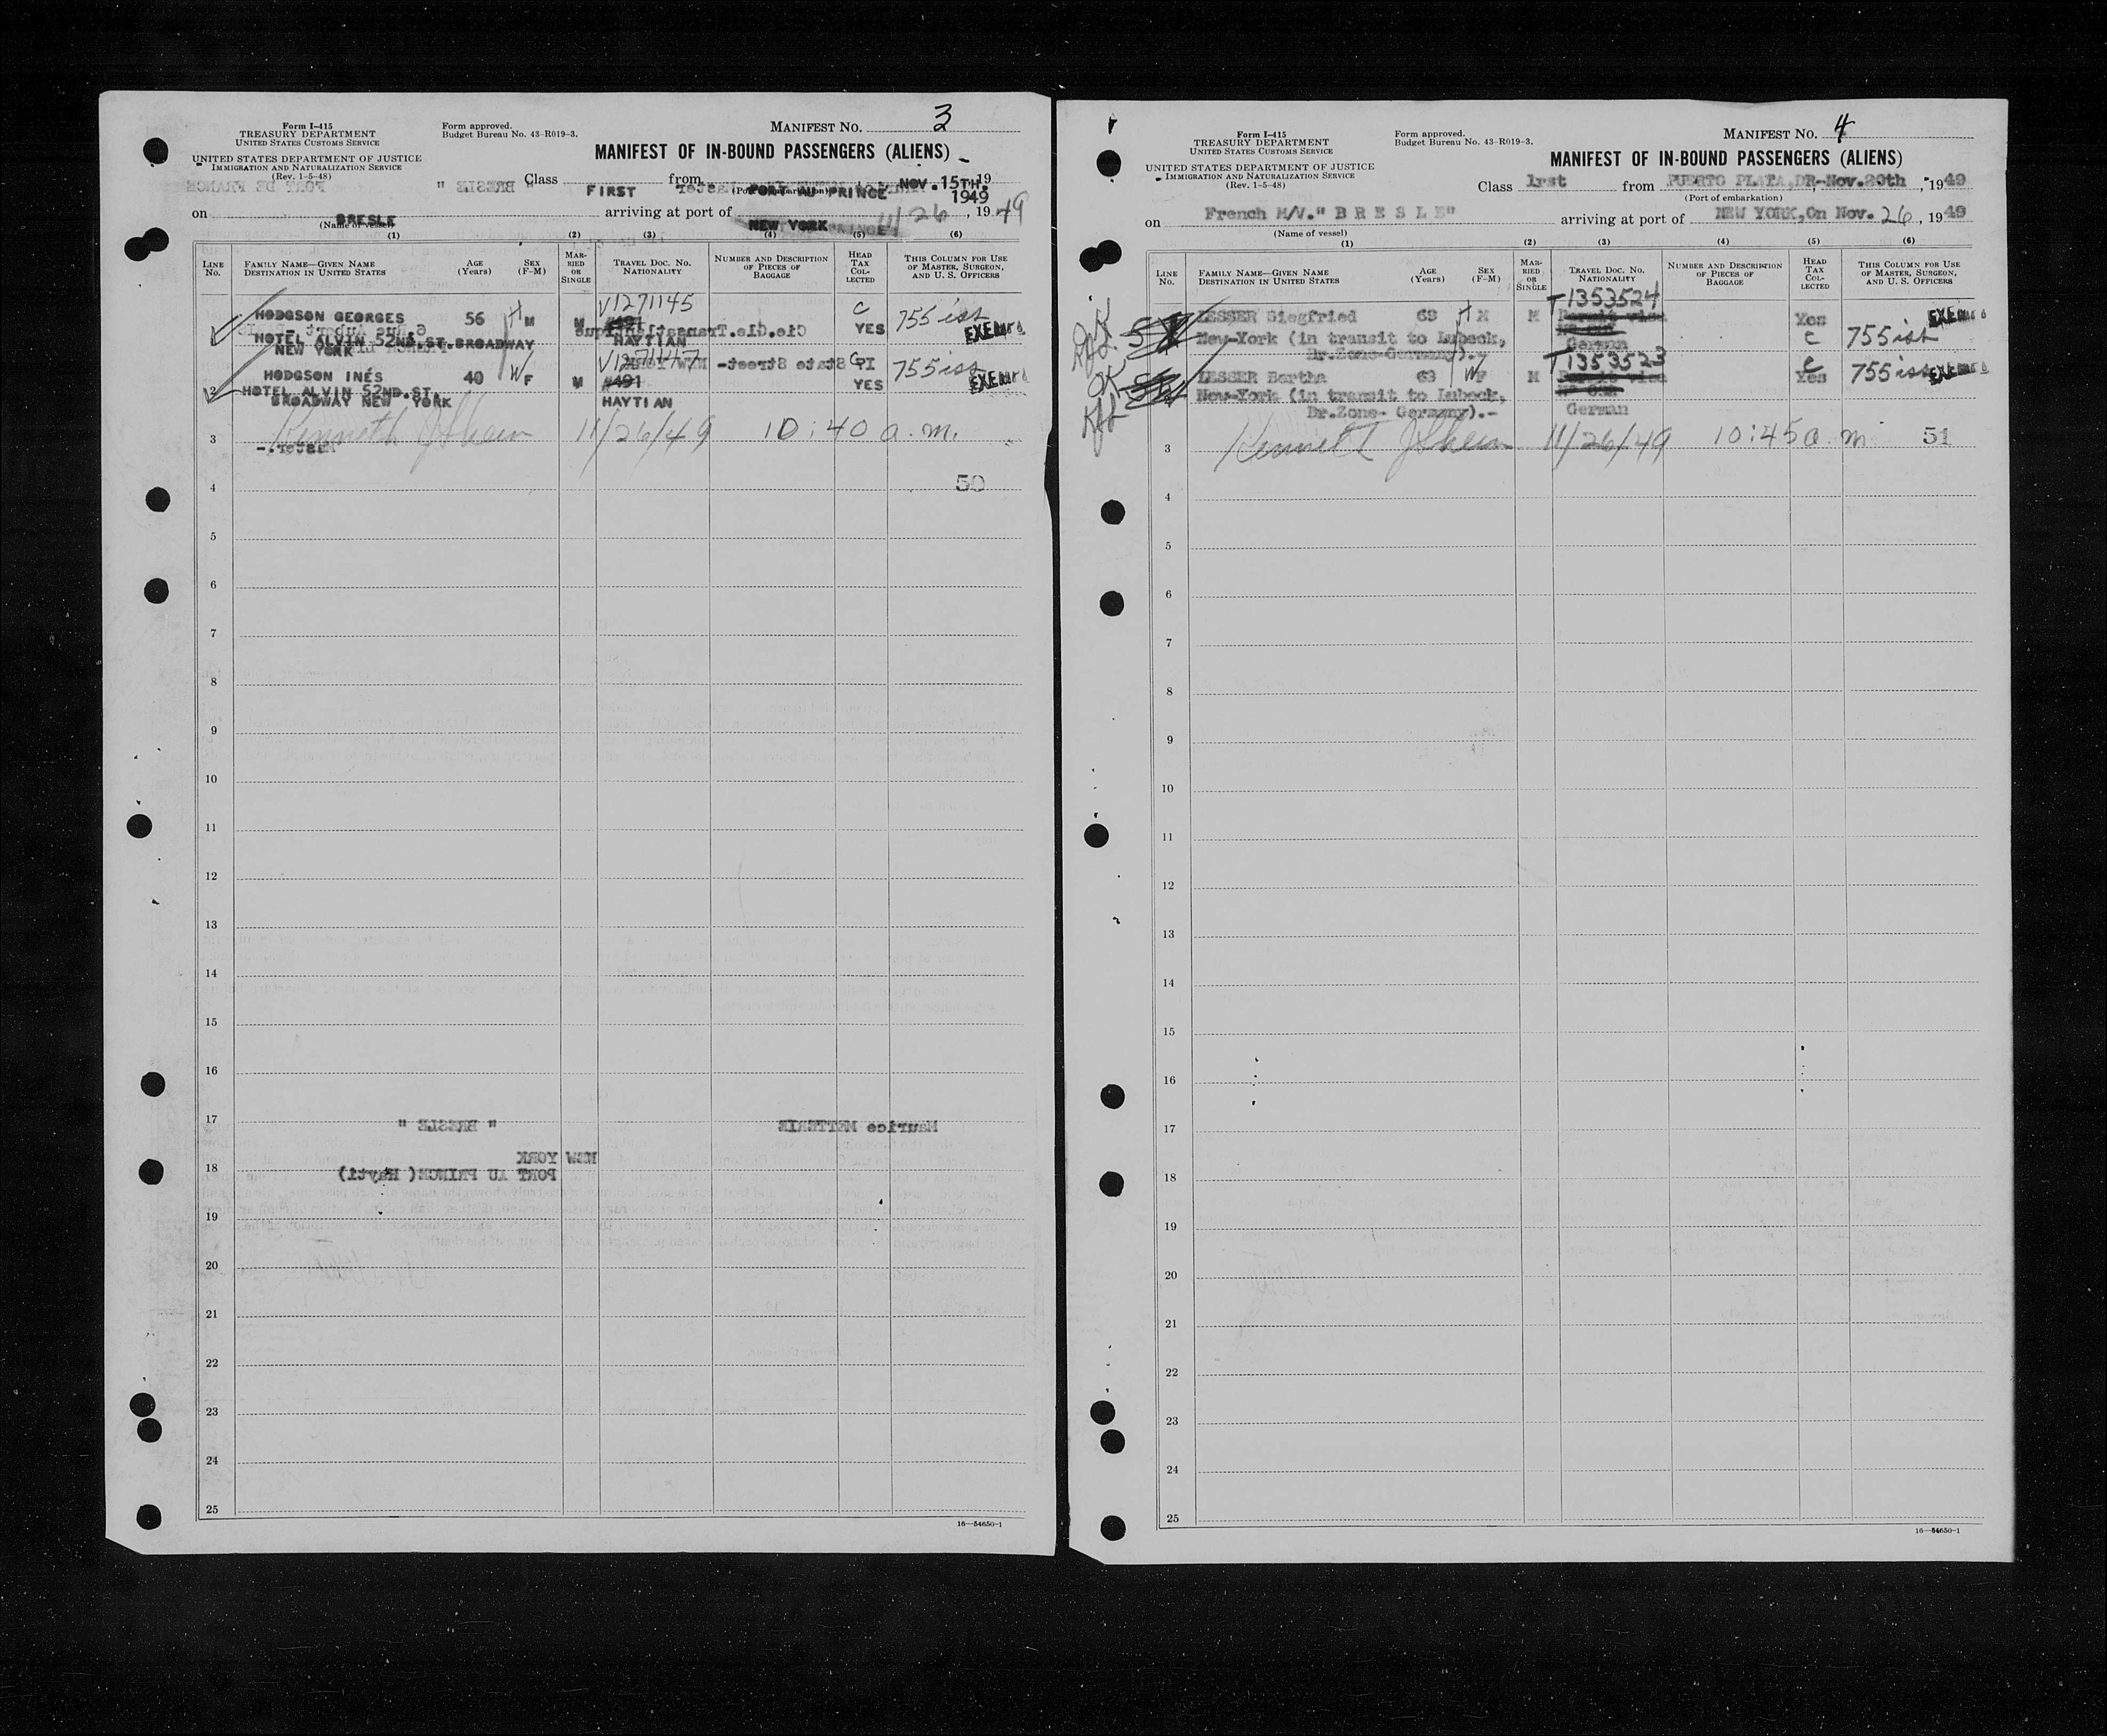 Form I-415
TREASURY DEPARTMENT
UNITED STATES CUSTOMS SERVICE
UNITED STATES DEPARTMENT OF JUSTICE
IMMIGRATION AND NATURALIZATION SERVICE
(Rev. 1-5-48)
Form approved.
Budget Bureau No. 43-R019-3.
MANIFEST NO. 3
MANIFEST OF IN-BOUND PASSENGERS (ALIENS)
Class FIRST from PORT AU PRINCE NOV. 15TH. 19
1949
on BRESLE arriving at port of NEW YORK 11/26, 1949
(Name of vessel)
(1) (2) (3) (4) (5) (6)
LINE No. FAMILY NAME—GIVEN NAME DESTINATION IN UNITED STATES AGE (Years) SEX (F-M) MARRIED OR SINGLE TRAVEL DOC. NO. NATIONALITY NUMBER AND DESCRIPTION OF PIECES OF BAGGAGE HEAD TAX COLLECTED THIS COLUMN FOR USE OF MASTER, SURGEON, AND U. S. OFFICERS
V1271145
HODGSON GEORGES 56 M M #491 C YES 755 iss EXEMPT
HOTEL ALVIN 52ND.ST.BROADWAY HAYTIAN
NEW YORK
V1271147
HODGSON INÉS 40 W F M #491 C YES 755 iss EXEMPT
2 HOTEL ALVIN 52ND.ST.
BROADWAY NEW YORK HAYTIAN
3 Kenneth 11/26/49 10:40 a.m.
4 50
5
6
7
8
9
10
11
12
13
14
15
16
17 " BRESLE " Maurice METTERIE
NEW YORK
18 PORT AU PRINCE ( Hayti)
19
20
21
22
23
24
25
16—54650-1
Form I-415
TREASURY DEPARTMENT
UNITED STATES CUSTOMS SERVICE
UNITED STATES DEPARTMENT OF JUSTICE
IMMIGRATION AND NATURALIZATION SERVICE
(Rev. 1-5-48)
Form approved.
Budget Bureau No. 43-R019-3.
MANIFEST NO. 4
MANIFEST OF IN-BOUND PASSENGERS (ALIENS)
Class 1rst from PUERTO PLATA,DR-Nov.20th, 1949
(Port of embarkation)
on French M/V." B R E S L E" arriving at port of NEW YORK,On Nov. 26, 1949
(Name of vessel)
(1) (2) (3) (4) (5) (6)
LINE No. FAMILY NAME—GIVEN NAME DESTINATION IN UNITED STATES AGE (Years) SEX (F-M) MARRIED OR SINGLE TRAVEL DOC. NO. NATIONALITY NUMBER AND DESCRIPTION OF PIECES OF BAGGAGE HEAD TAX COLLECTED THIS COLUMN FOR USE OF MASTER, SURGEON, AND U. S. OFFICERS
T1353524
LESSER Siegfried 63 M M Yes EXEMPT
New-York (in transit to Lubeck, German C 755 iss
Br.Zone-Germany).-
OK T1353523
LESSER Bertha 63 W F M C Yes 755 iss EXEMPT
New-York (in transit to Lubeck,
Br.Zone- Germany).- German
3 Kenneth 11/26/49 10:45 a m 51
4
5
6
7
8
9
10
11
12
13
14
15
16
17
18
19
20
21
22
23
24
25
16—54650-1